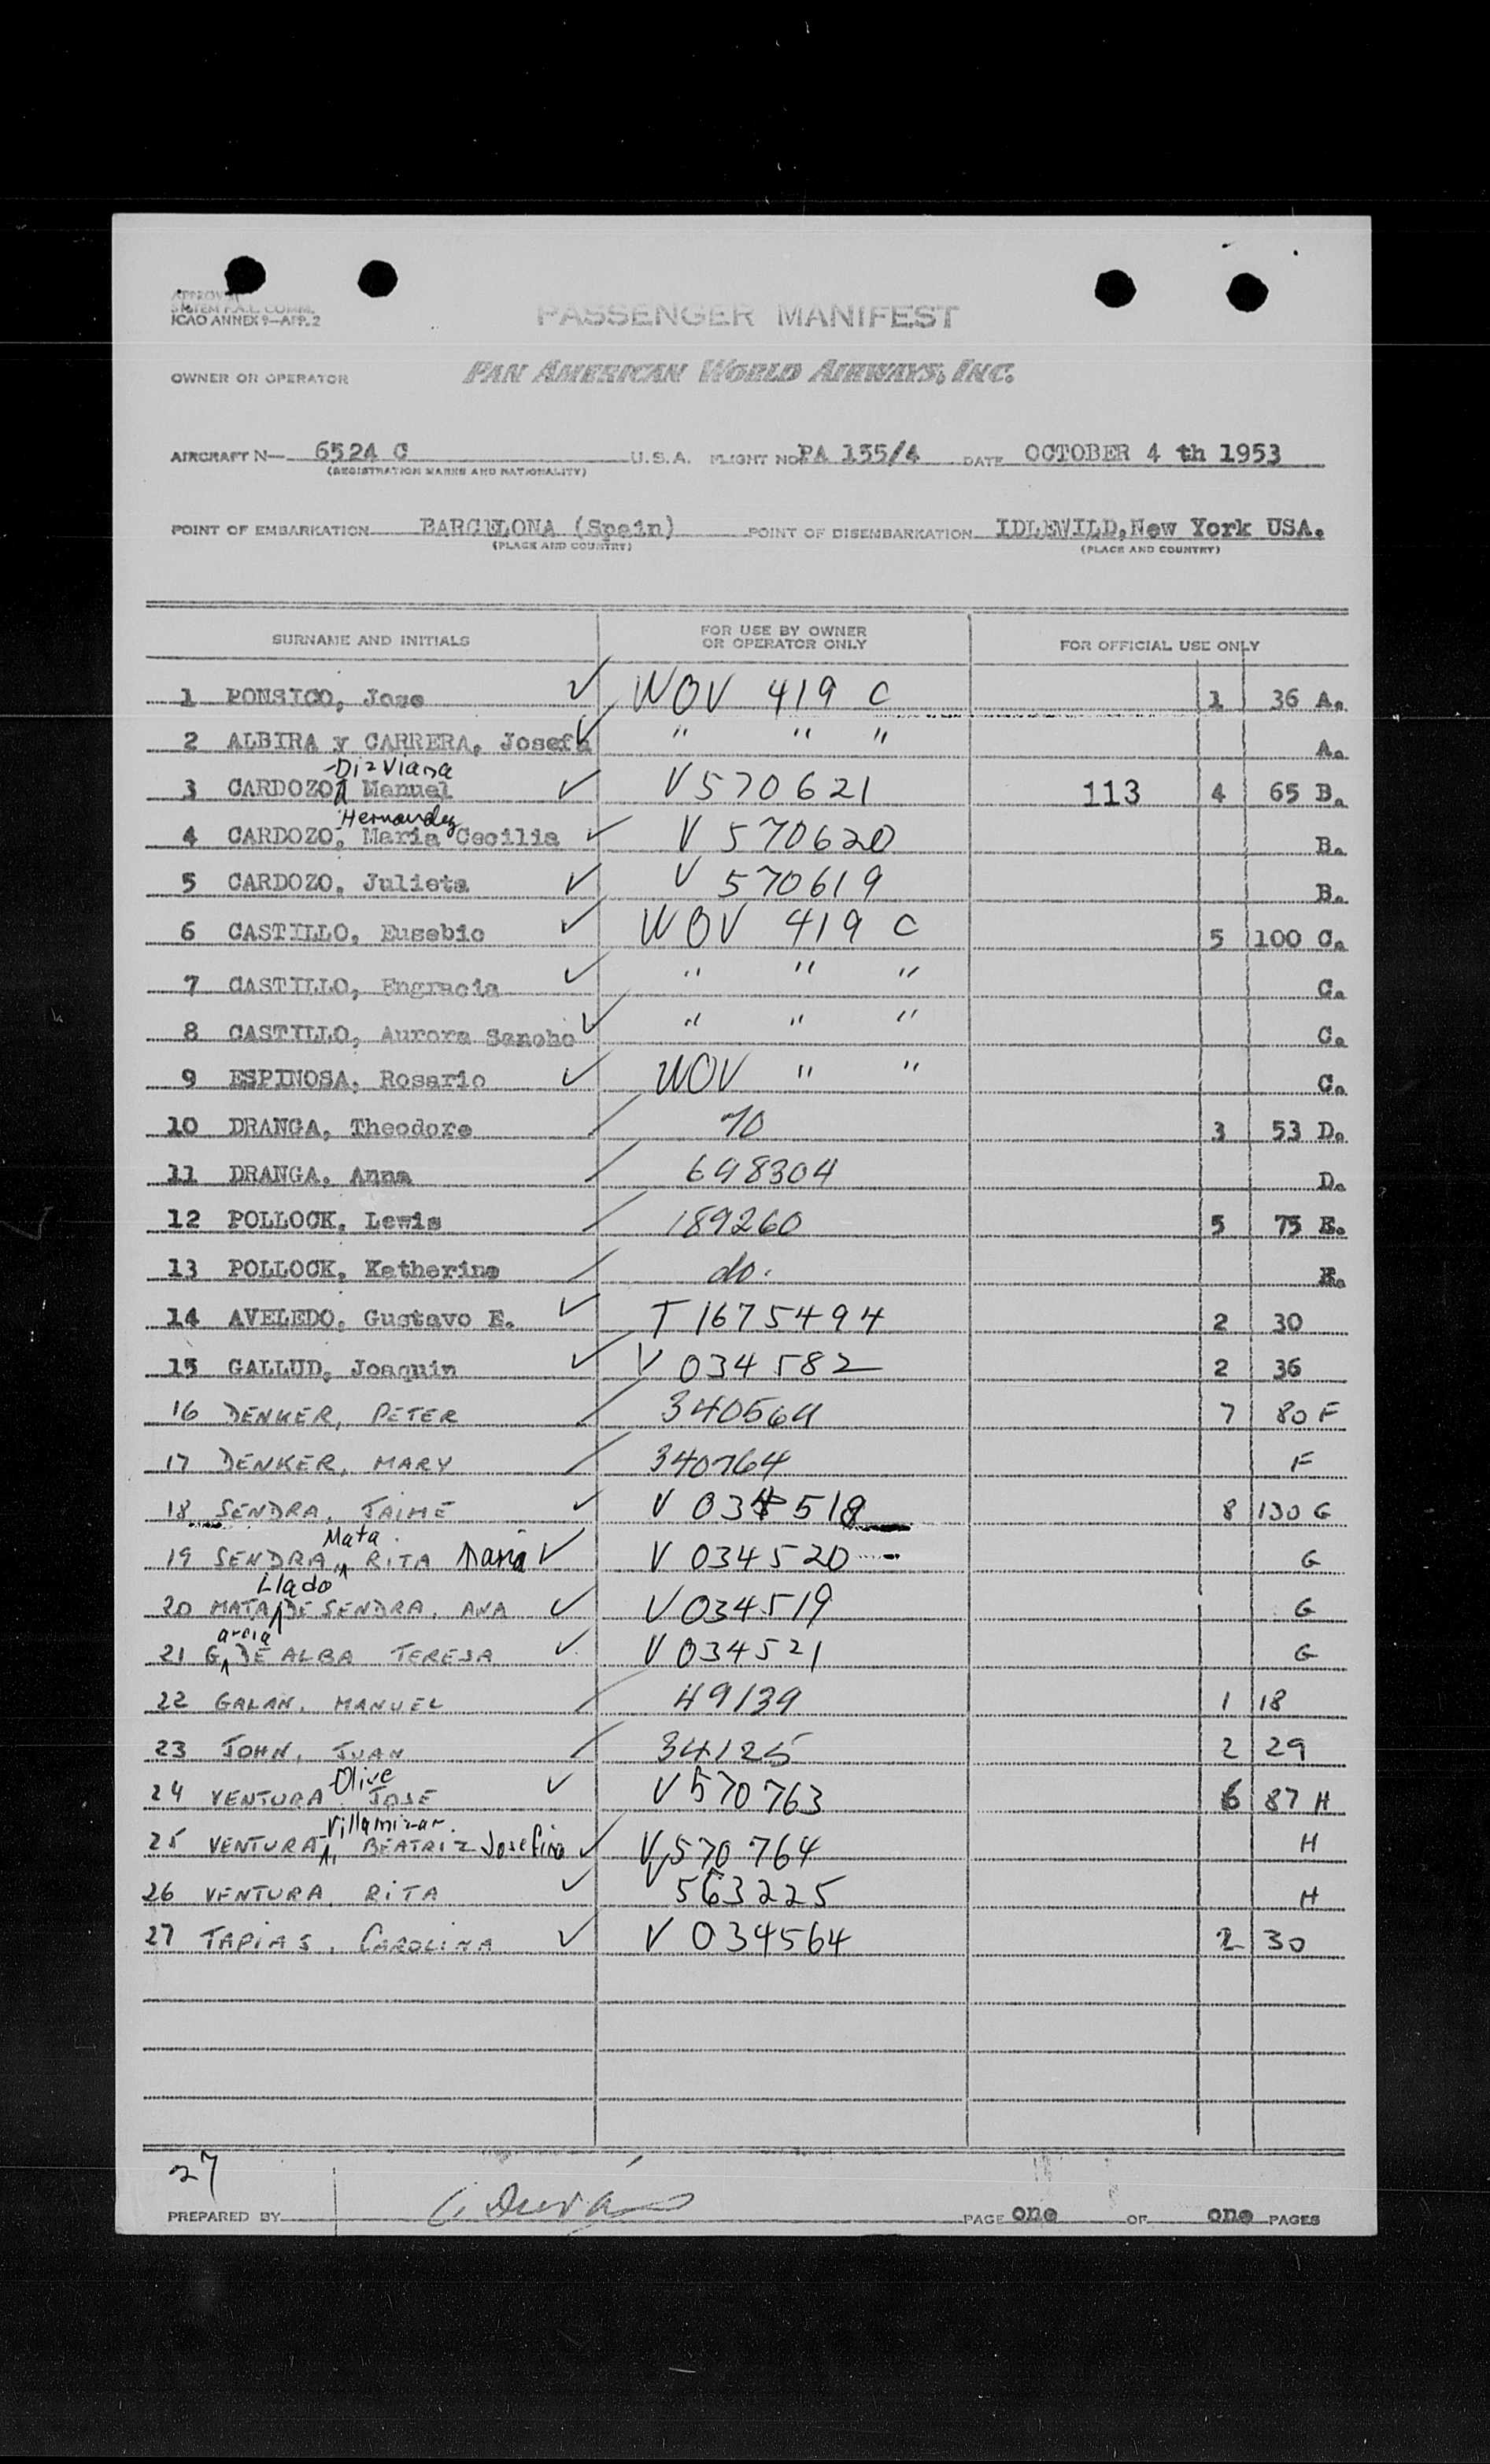 APPROVAL
SYSTEM F.A.L. COMM.
ICAO ANNEX 9—APP. 2
PASSENGER MANIFEST
OWNER OR OPERATOR PAN AMERICAN WORLD AIRWAYS, INC.
AIRCRAFT N— 6524 C U.S.A. FLIGHT NO. PA 155/4 DATE OCTOBER 4 th 1953
(REGISTRATION MARKS AND NATIONALITY)
POINT OF EMBARKATION BARCELONA (Spain) POINT OF DISEMBARKATION IDLEWILD, New York USA.
(PLACE AND COUNTRY) (PLACE AND COUNTRY)
SURNAME AND INITIALS FOR USE BY OWNER OR OPERATOR ONLY FOR OFFICIAL USE ONLY
1 PONSICO, Jose ✓ WOV 419 C 1 36 A.
2 ALBIRA y CARRERA, Josefa ✓ " " " A.
-Diz Viana
3 CARDOZO, Manuel ✓ V 570621 113 4 65 B.
Hernandez
4 CARDOZO, Maria Cecilia ✓ V 570620 B.
5 CARDOZO, Julieta ✓ V 570619 B.
6 CASTILLO, Eusebio ✓ WOV 419 C 5 100 C.
7 CASTILLO, Engracia ✓ " " " C.
8 CASTILLO, Aurora Sancho ✓ " " " C.
9 ESPINOSA, Rosario ✓ WOV " " C.
10 DRANGA, Theodore / 70 3 53 D.
11 DRANGA, Anna / 698304 D.
12 POLLOCK, Lewis / 189260 5 75 E.
13 POLLOCK, Katherine / do. E.
14 AVELEDO, Gustavo E. ✓ T 1675494 2 30
15 GALLUD, Joaquin ✓ V 034582 2 36
16 DENKER, PETER / 340564 7 80 F
17 DENKER, MARY / 340764 F
18 SENDRA, JAIME ✓ V 034518 8 130 G
Mata
19 SENDRA, RITA Maria ✓ V 034520 G
Llado
20 MATA DE SENDRA, ANA ✓ V 034519 G
arcia
21 G DE ALBA TERESA ✓ V 034521 G
22 GALAN, MANUEL / 49139 1 18
23 JOHN, JUAN / 34125 2 29
Olive
24 VENTURA JOSE ✓ V 570763 6 87 H
Villamizar
25 VENTURA, BEATRIZ Josefina ✓ V 570764 H
26 VENTURA RITA ✓ 563225 H
27 TAPIAS, CAROLINA ✓ V 034564 2 30
27
PREPARED BY PAGE one OF one PAGES